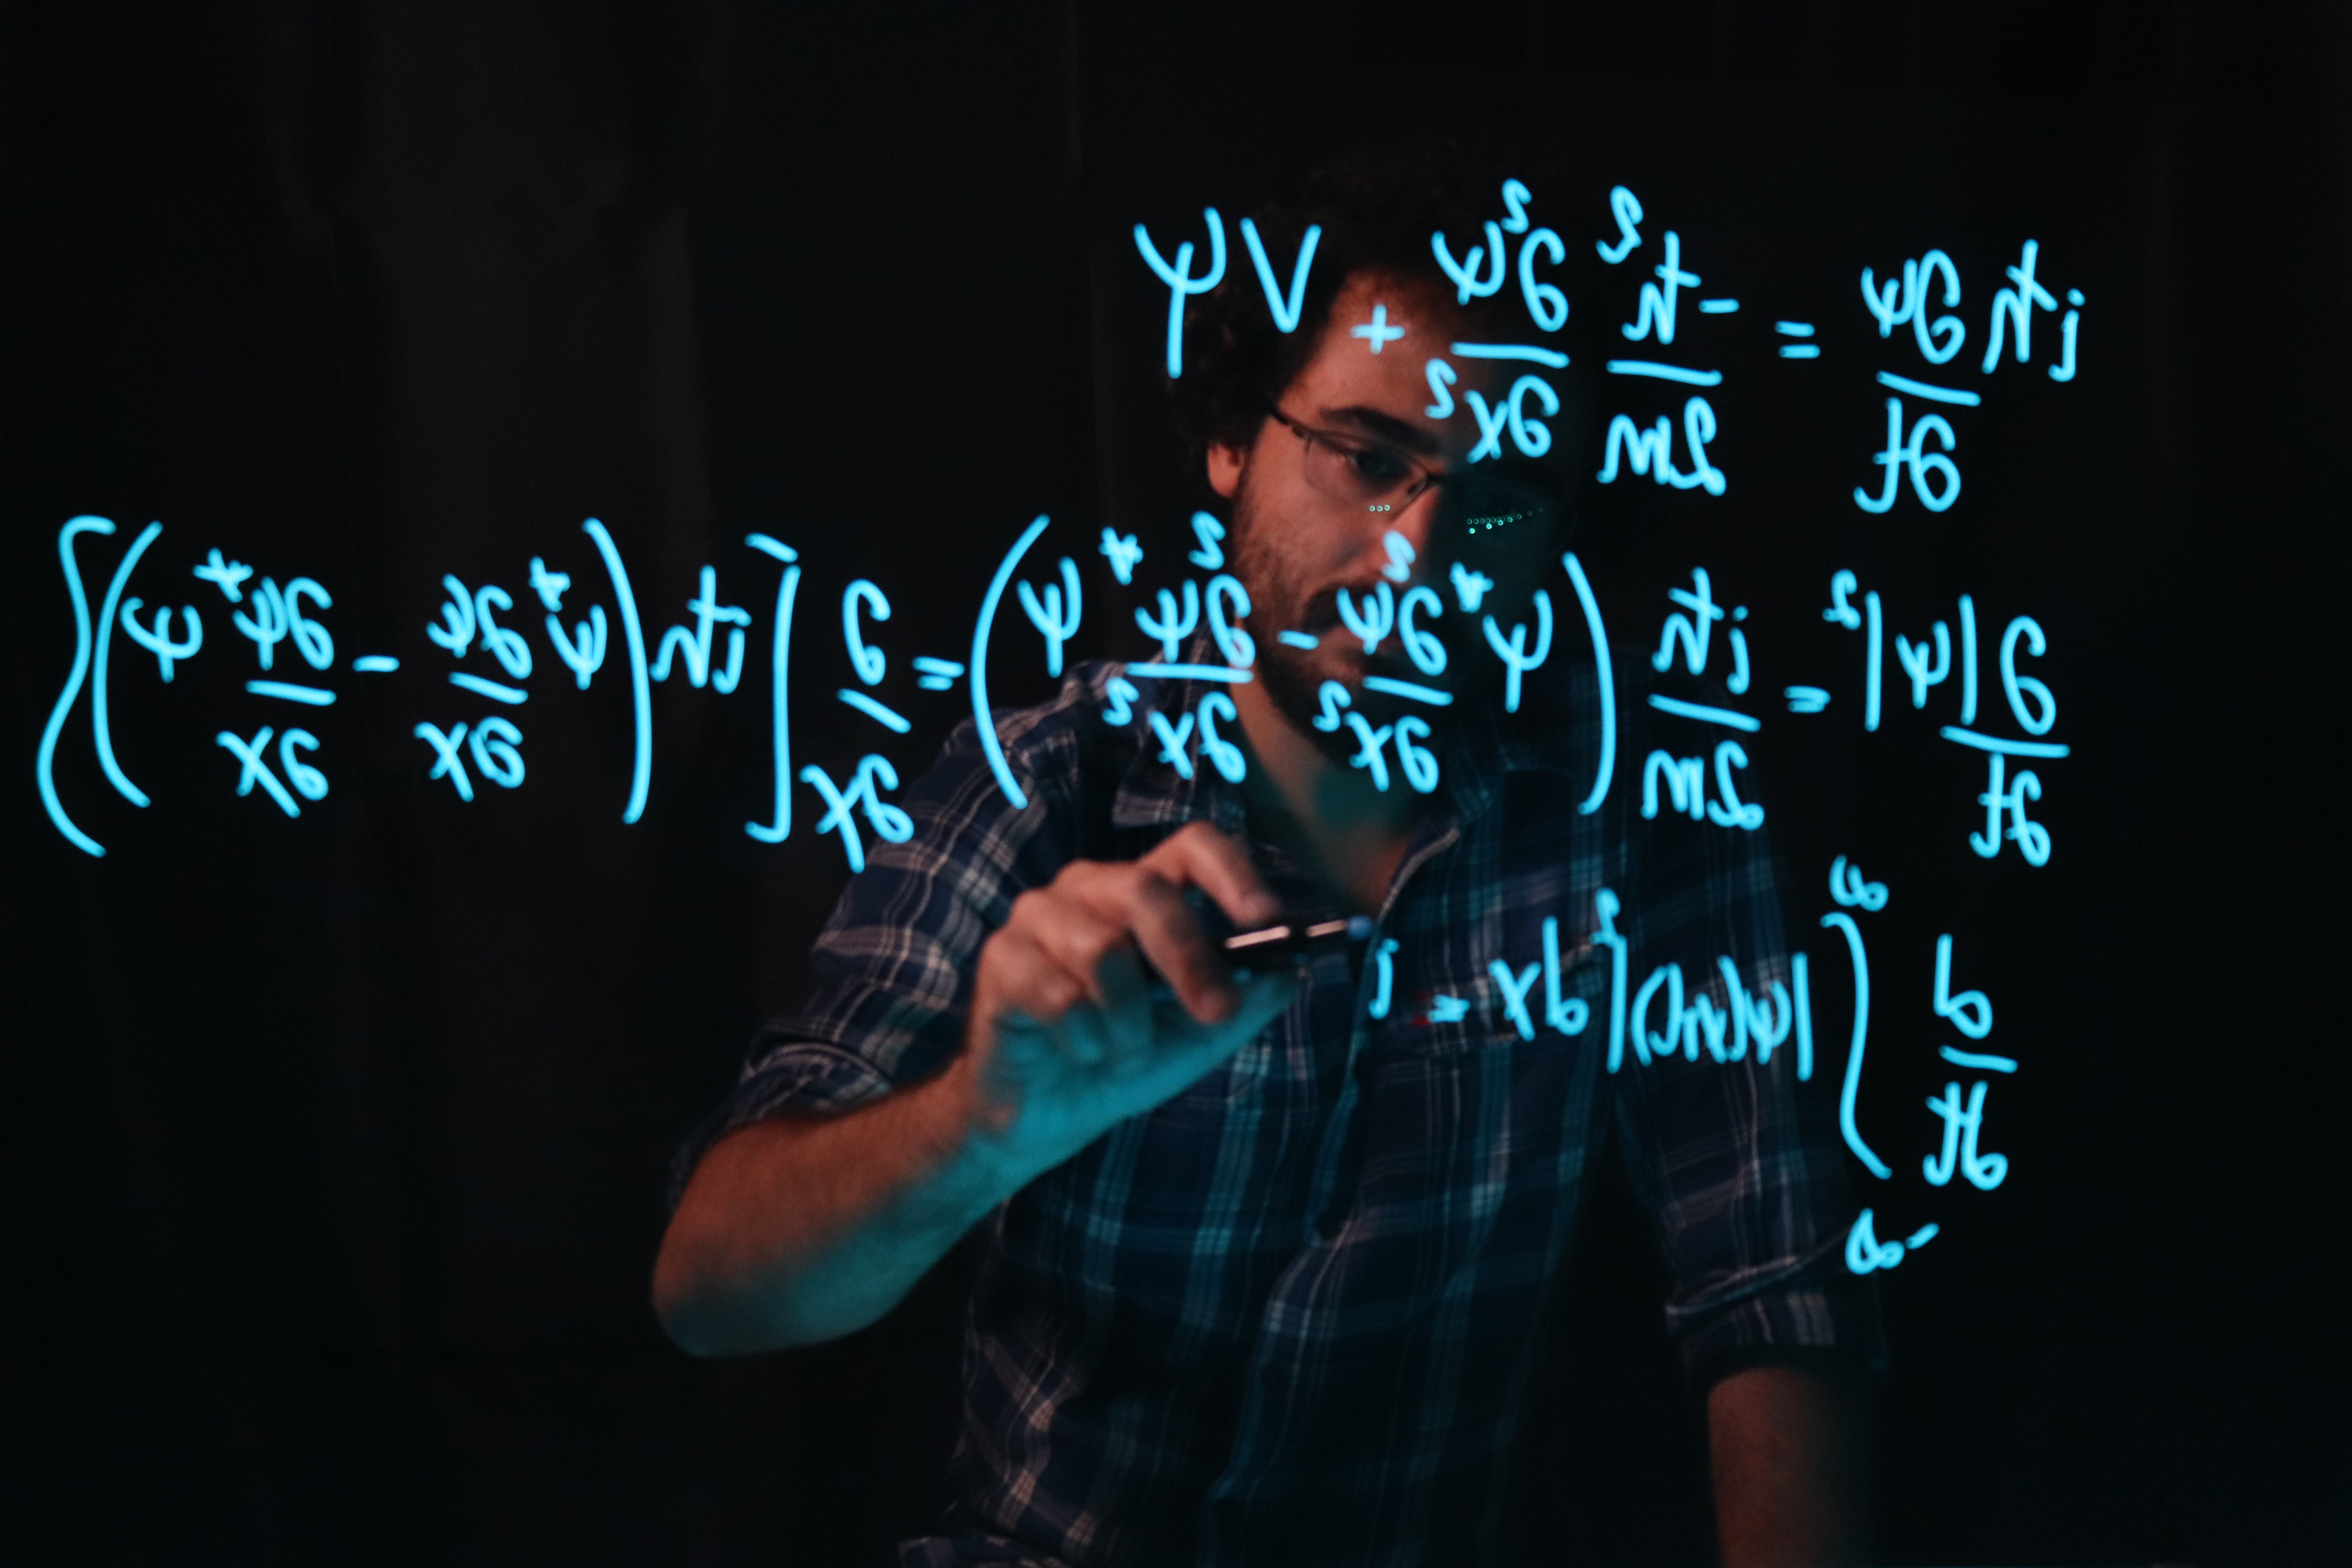 iℏ ∂ψ/∂t = -ℏ²/2m ∂²ψ/∂x² + Vψ
∂|ψ|²/∂t = iℏ/2m (ψ* ∂²ψ/∂x² - ∂²ψ*/∂x² ψ) = ∂/∂x [iℏ (ψ* ∂ψ/∂x - ∂ψ*/∂x ψ)}
d/dt ∫ -∞ ∞ |ψ(x,t)|² dx = i